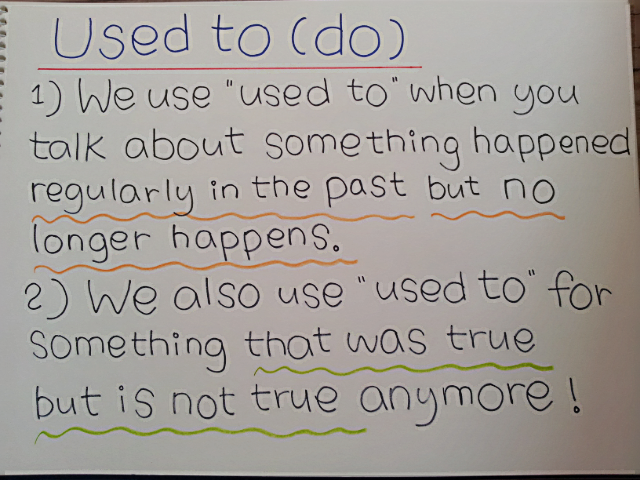 Used to (do)
1) We use "used to" when you
talk about something happened
regularly in the past but no
longer happens.
2) We also use "used to" for
something that was true
but is not true anymore!